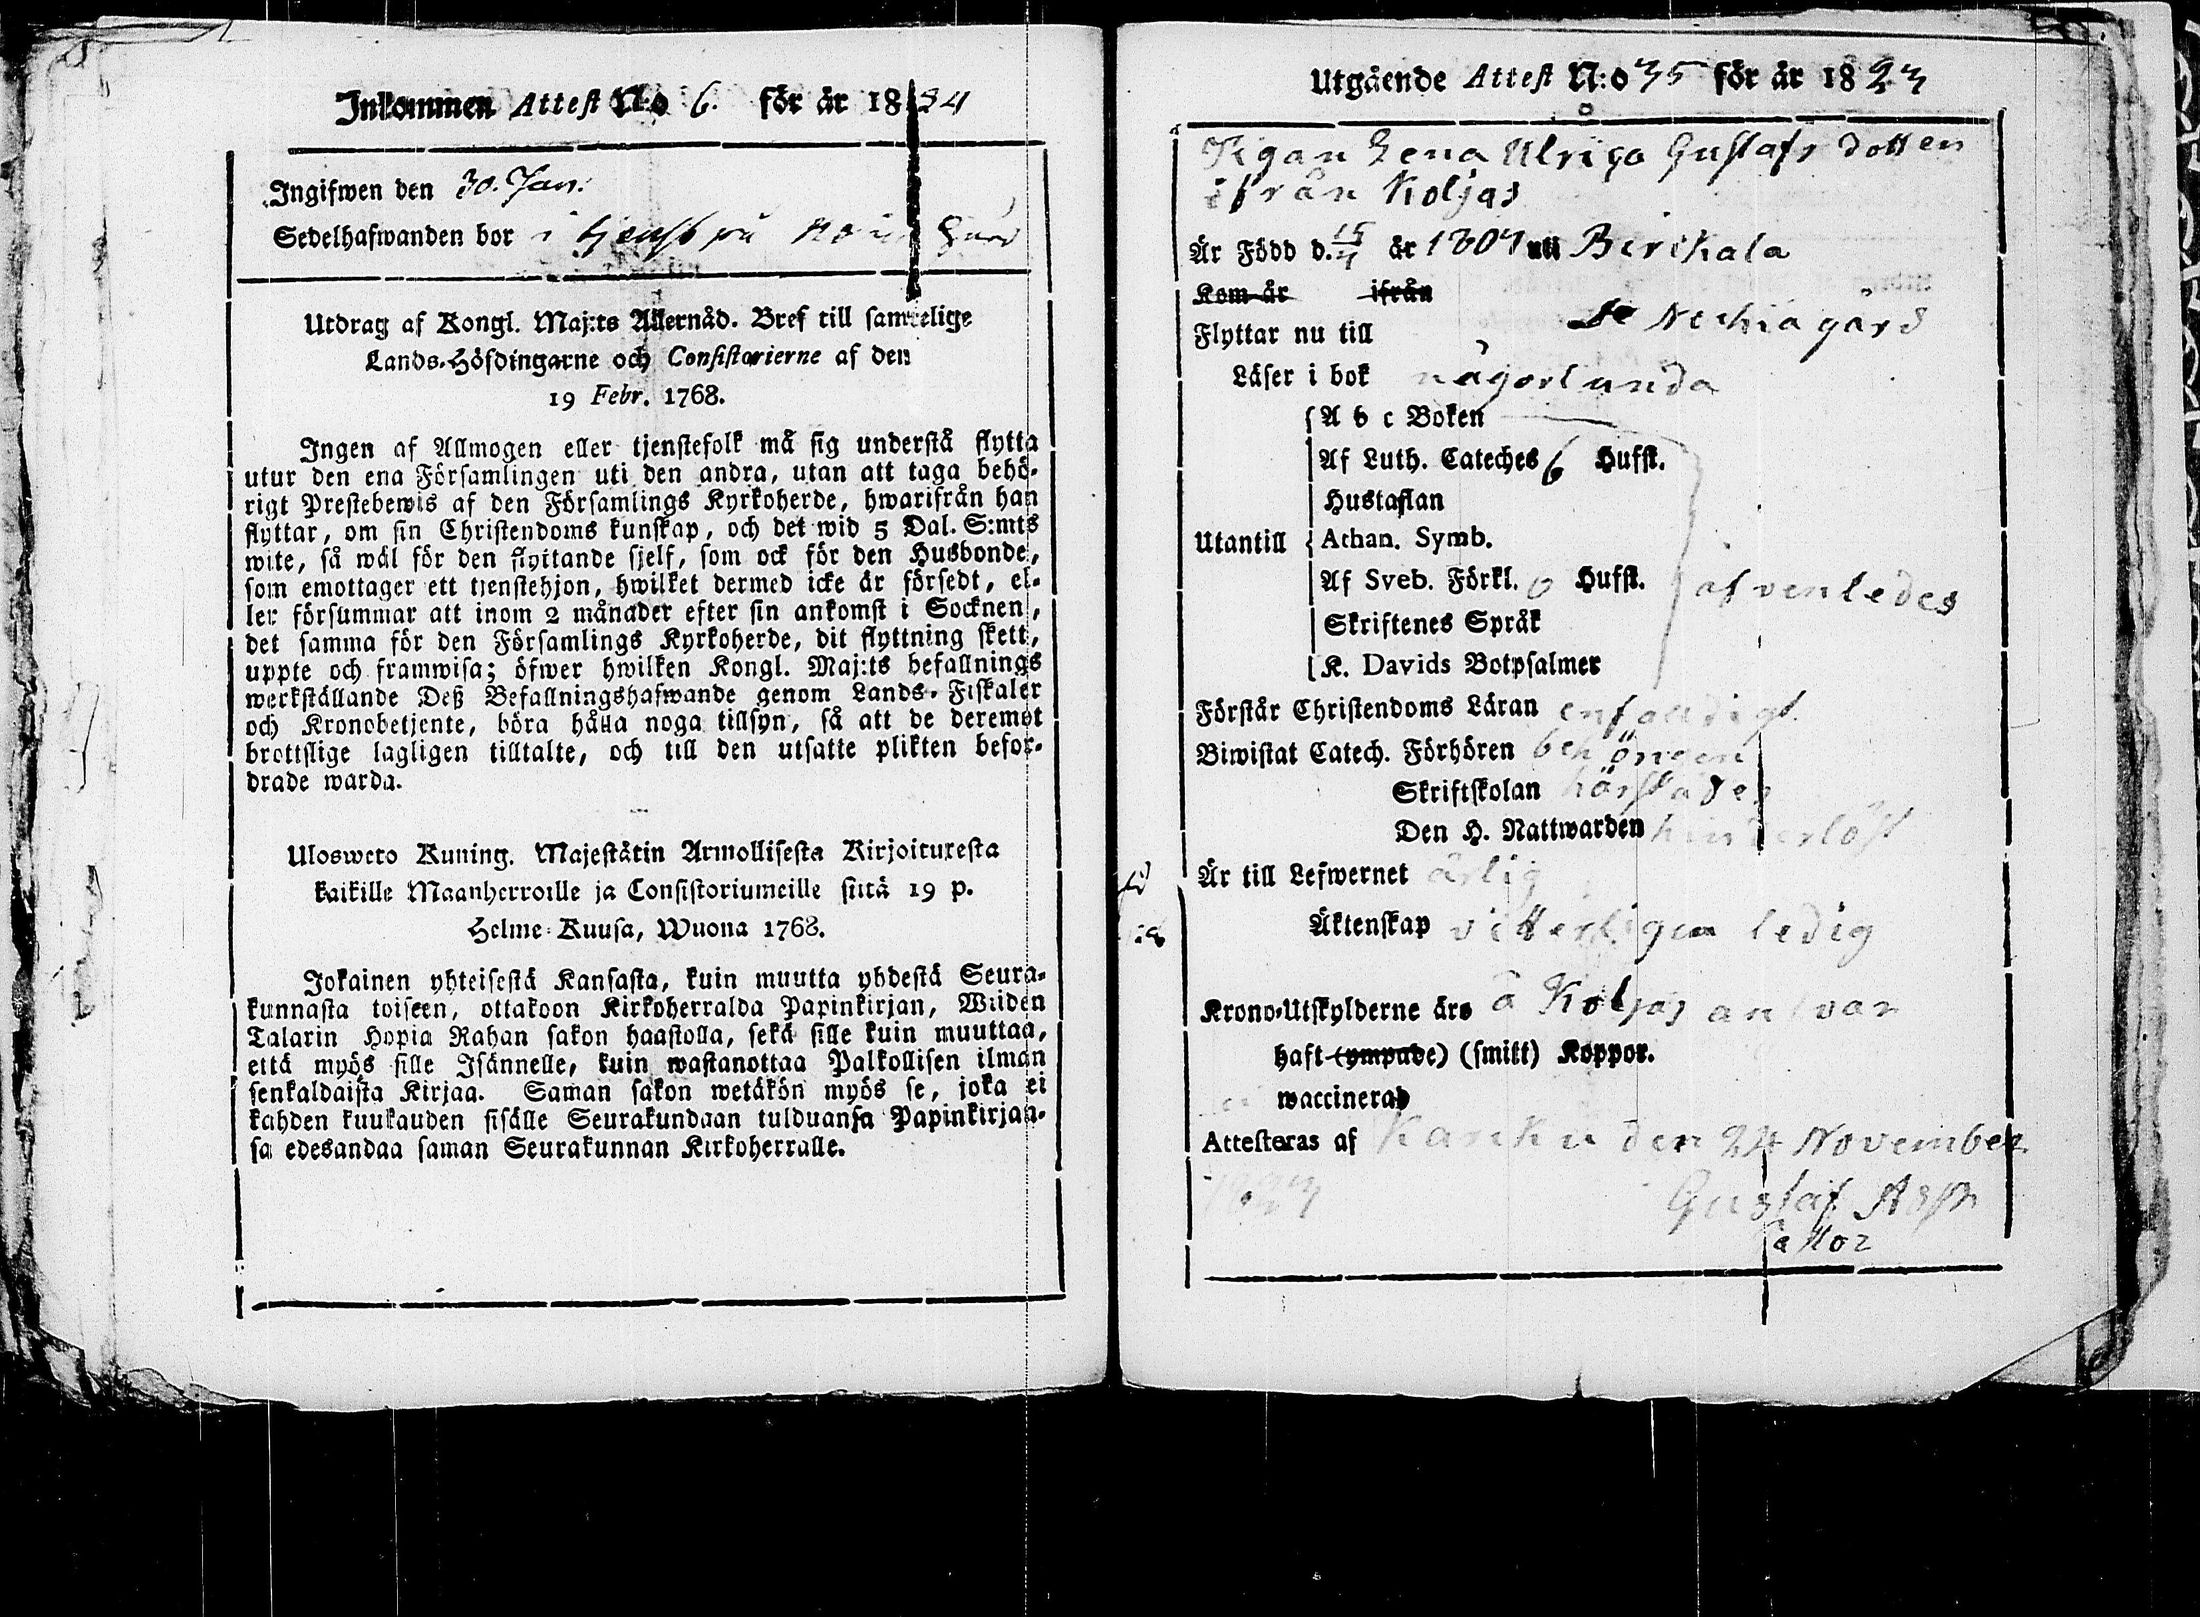 Inkommen Attest N:o 6. för år 1824
Ingifwen den 30. Jan:
Sedelhafwanden bor i tjenst på gård
Utdrag af Kongl. Maj:ts Allernåd. Bref till samtelige
Lands-Höfdingarne och Consistorierne af den
19 Febr. 1768.
Ingen af Allmogen eller tjenstefolk må sig understå flytta
utur den ena Församlingen uti den andra, utan att taga behö-
rigt Prestebewis af den Församlings Kyrkoherde, hwarifrån han
flyttar, om sin Christendoms kunskap, och det wid 5 Dal. S:mts
wite, så wäl för den flyttande sjelf, som ock för den Husbonde,
som emottager ett tjenstehjon, hwilket dermed icke är försedt, el-
ler försummar att inom 2 månader efter sin ankomst i Socknen,
det samma för den Församlings Kyrkoherde, dit flyttning skett,
uppte och framwisa; öfwer hwilken Kongl. Maj:ts befallnings
werkställande Deß Befallningshafwande genom Lands-Fiskaler
och Kronobetjente, böra hålla noga tillsyn, så att de deremot
brottslige lagligen tilltalte, och till den utsatte plikten befor-
drade warda.
Ulosweto Kuning. Majestätin Armollisesta Kirjoituxesta
kaikille Maanherroille ja Consistoriumeille siitä 19 p.
Helme-Kuusa, Wuona 1768.
Jokainen yhteisestä Kansasta, kuin muutta yhdestä Seura-
kunnasta toiseen, ottakoon Kirkoherralda Papinkirjan, Wiiden
Talarin Hopia Rahan sakon haastolla, sekä sille kuin muuttaa,
että myös sille Isännelle, kuin wastanottaa Palkollisen ilman
senkaldaista Kirjaa. Saman sakon wetäkön myös se, joka ei
kahden kuukauden sisälle Seurakundaan tulduansa Papinkirjan-
sa edesandaa saman Seurakunnan Kirkoherralle.
Utgående Attest N:o 35 för år 1823
Pigan Lena Ulrica Gustafs dotter
ifrån Koljas
Är Född d. 15/4 år 1804 uti Birckala
Kom år ifrån
Flyttar nu till gård
Läser i bok någorlunda
A b c Boken
Af Luth. Cateches 6 Hufst.
Hustaflan
Utantill Athan. Symb.
Af Sveb. Förkl. 0 Hufst. äfvenledes
Skriftenes Språk
K. Davids Botpsalmer
Förstår Christendoms Läran enfaldigt
Biwistat Catech. Förhören behörigen
Skriftskolan härstädes
Den H. Nattwarden hinderlöst
Är till Lefwernet ärlig
Äktenskap vitterligen ledig
Krono-Utskylderne äro å Koljas ansvar
haft (ympade) (smitt) Koppor.
waccinerad
Attesteras af Karku den 24 November
1823
Gustaf